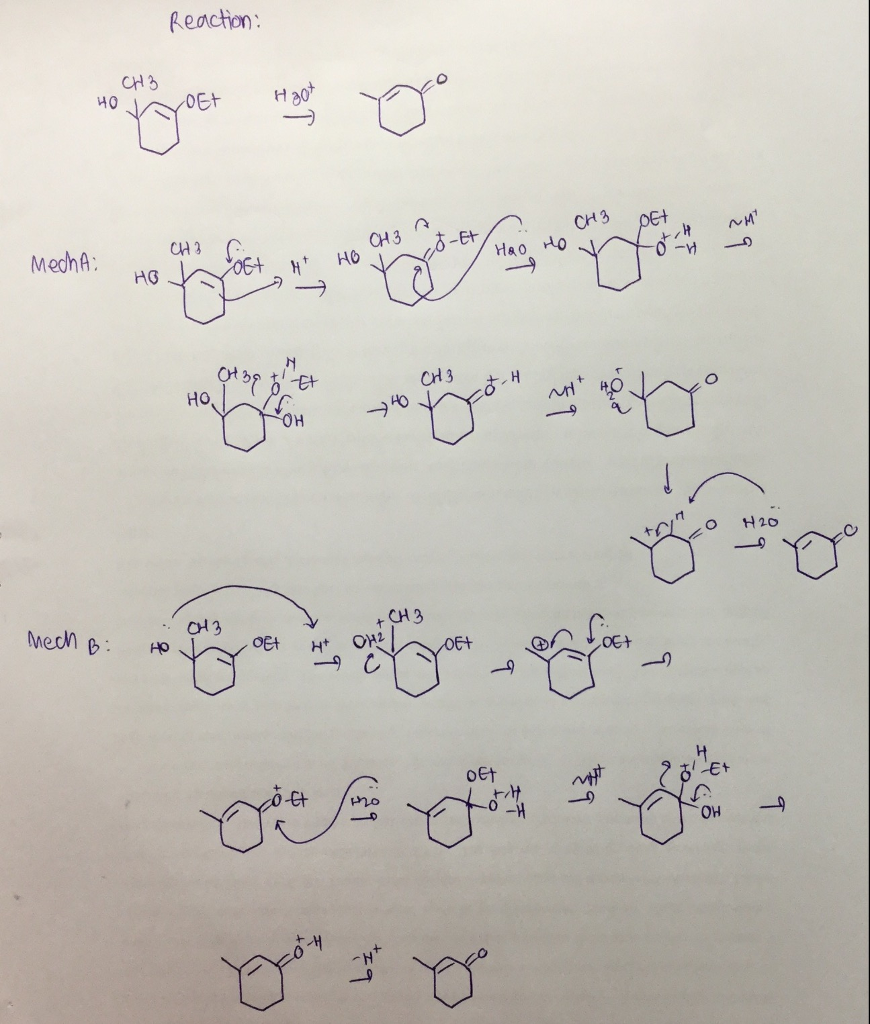 Reaction:
CH3
HO OEt H3O+ O
Mech A:
CH3
HO OEt H+ HO CH3 O+-Et H2O HO CH3 OEt O+-H -H ~H+
HO CH3 O+ H -Et OH → HO CH3 O+-H ~H+ H2O+ O
+ H O H2O O
Mech B:
HO CH3 OEt H+ OH2+ CH3 OEt + OEt
O+-Et H2O OEt O+-H -H ~H+ O+ H -Et OH
O+-H -H+ O